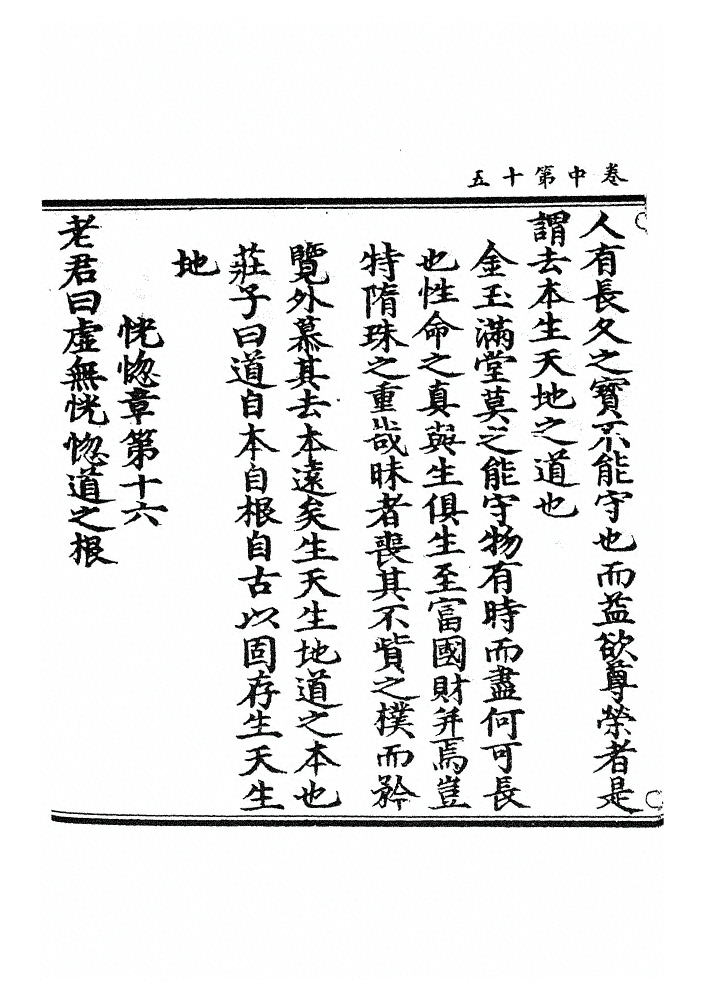 卷中第十五
人有長久之寶不能守也而益欲尊榮者是
謂去本生天地之道也
金玉滿堂莫之能守物有時而盡何可長
也性命之真與生俱生至富國財并焉豈
特隋珠之重哉昧者喪其不貲之樸而矜
覽外慕其去本遠矣生天生地道之本也
莊子曰道自本自根自古以固存生天生
地
恍惚章第十六
老君曰虛無恍惚道之根